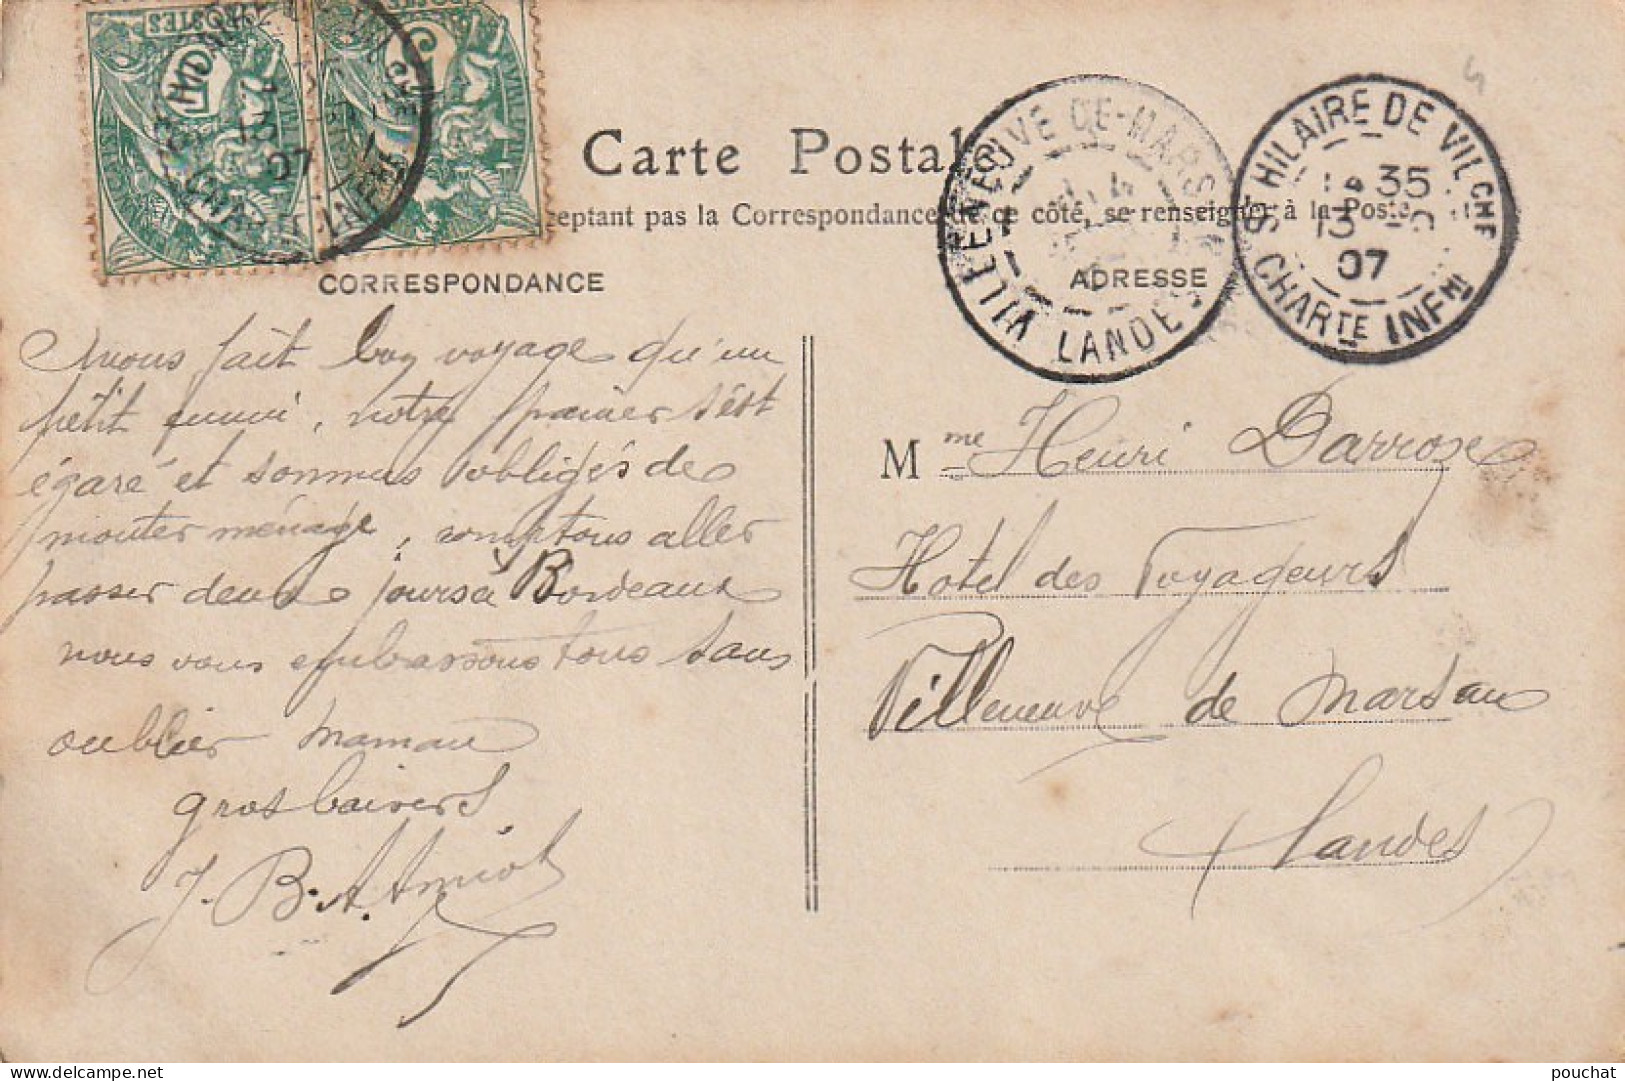 POSTES
POSTES
Carte Postale
ceptant pas la Correspondance de ce côté, se renseigner à la Poste
CORRESPONDANCE
ADRESSE
VILLENEUVE-DE-MARSAN
LANDES
ST HILAIRE DE VIL CHE
14 35
13
07
CHARTE INFRE
13
07
Avons fait bon voyage qu'un
petit ennui, notre panier s'est
égaré et sommes obligés de
monter ménage, comptons aller
passer deux jours à Bordeaux
nous vous embrassons tous sans
oublier maman
gros baisers
J. B. A. Amiot
Mme Henri Darroze
Hotel des Voyageurs
Villeneuve de Marsan
Landes
pouchat